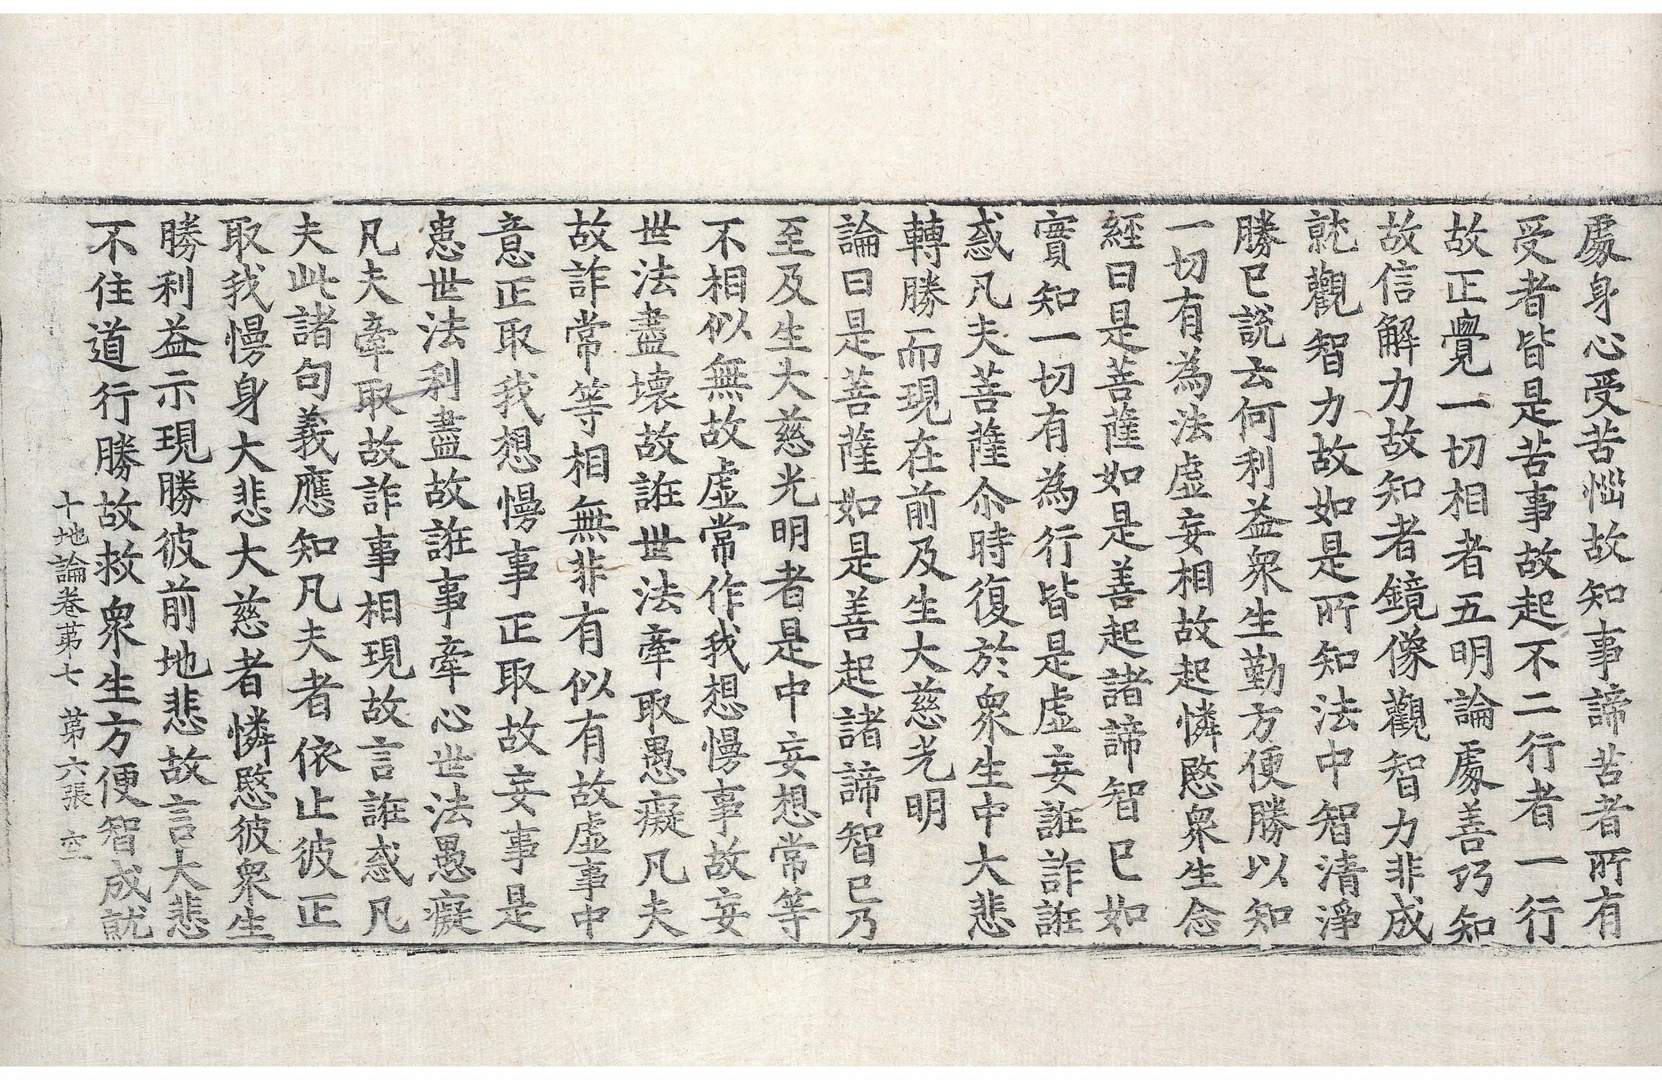 處身心受苦惱故知事諦苦者所有
受者皆是苦事故起不二行者一行
故正覺一切相者五明論處善巧知
故信解力故知者鏡像觀智力非成
就觀智力故如是所知法中智清淨
勝已說云何利益衆生勤方便勝以知
一切有為法虛妄相故起憐愍衆生念
經曰是菩薩如是善起諸諦智已如
實知一切有為行皆是虛妄誑詐誑
惑凡夫菩薩尒時復於衆生中大悲
轉勝而現在前及生大慈光明
論曰是菩薩如是善起諸諦智已乃
至及生大慈光明者是中妄想常等
不相似無故虛常作我想慢事故妄
世法盡壞故誑世法牽取愚癡凡夫
故詐常等相無非有似有故虛事中
意正取我想慢事正取故妄事是
患世法利盡故誑事牽心世法愚癡
凡夫牽取故詐事相現故言誑惑凡
夫此諸句義應知凡夫者依止彼正
取我慢身大悲大慈者憐愍彼衆生
勝利益示現勝彼前地悲故言大悲
不住道行勝故救衆生方便智成就
十地論卷苐七　苐六張